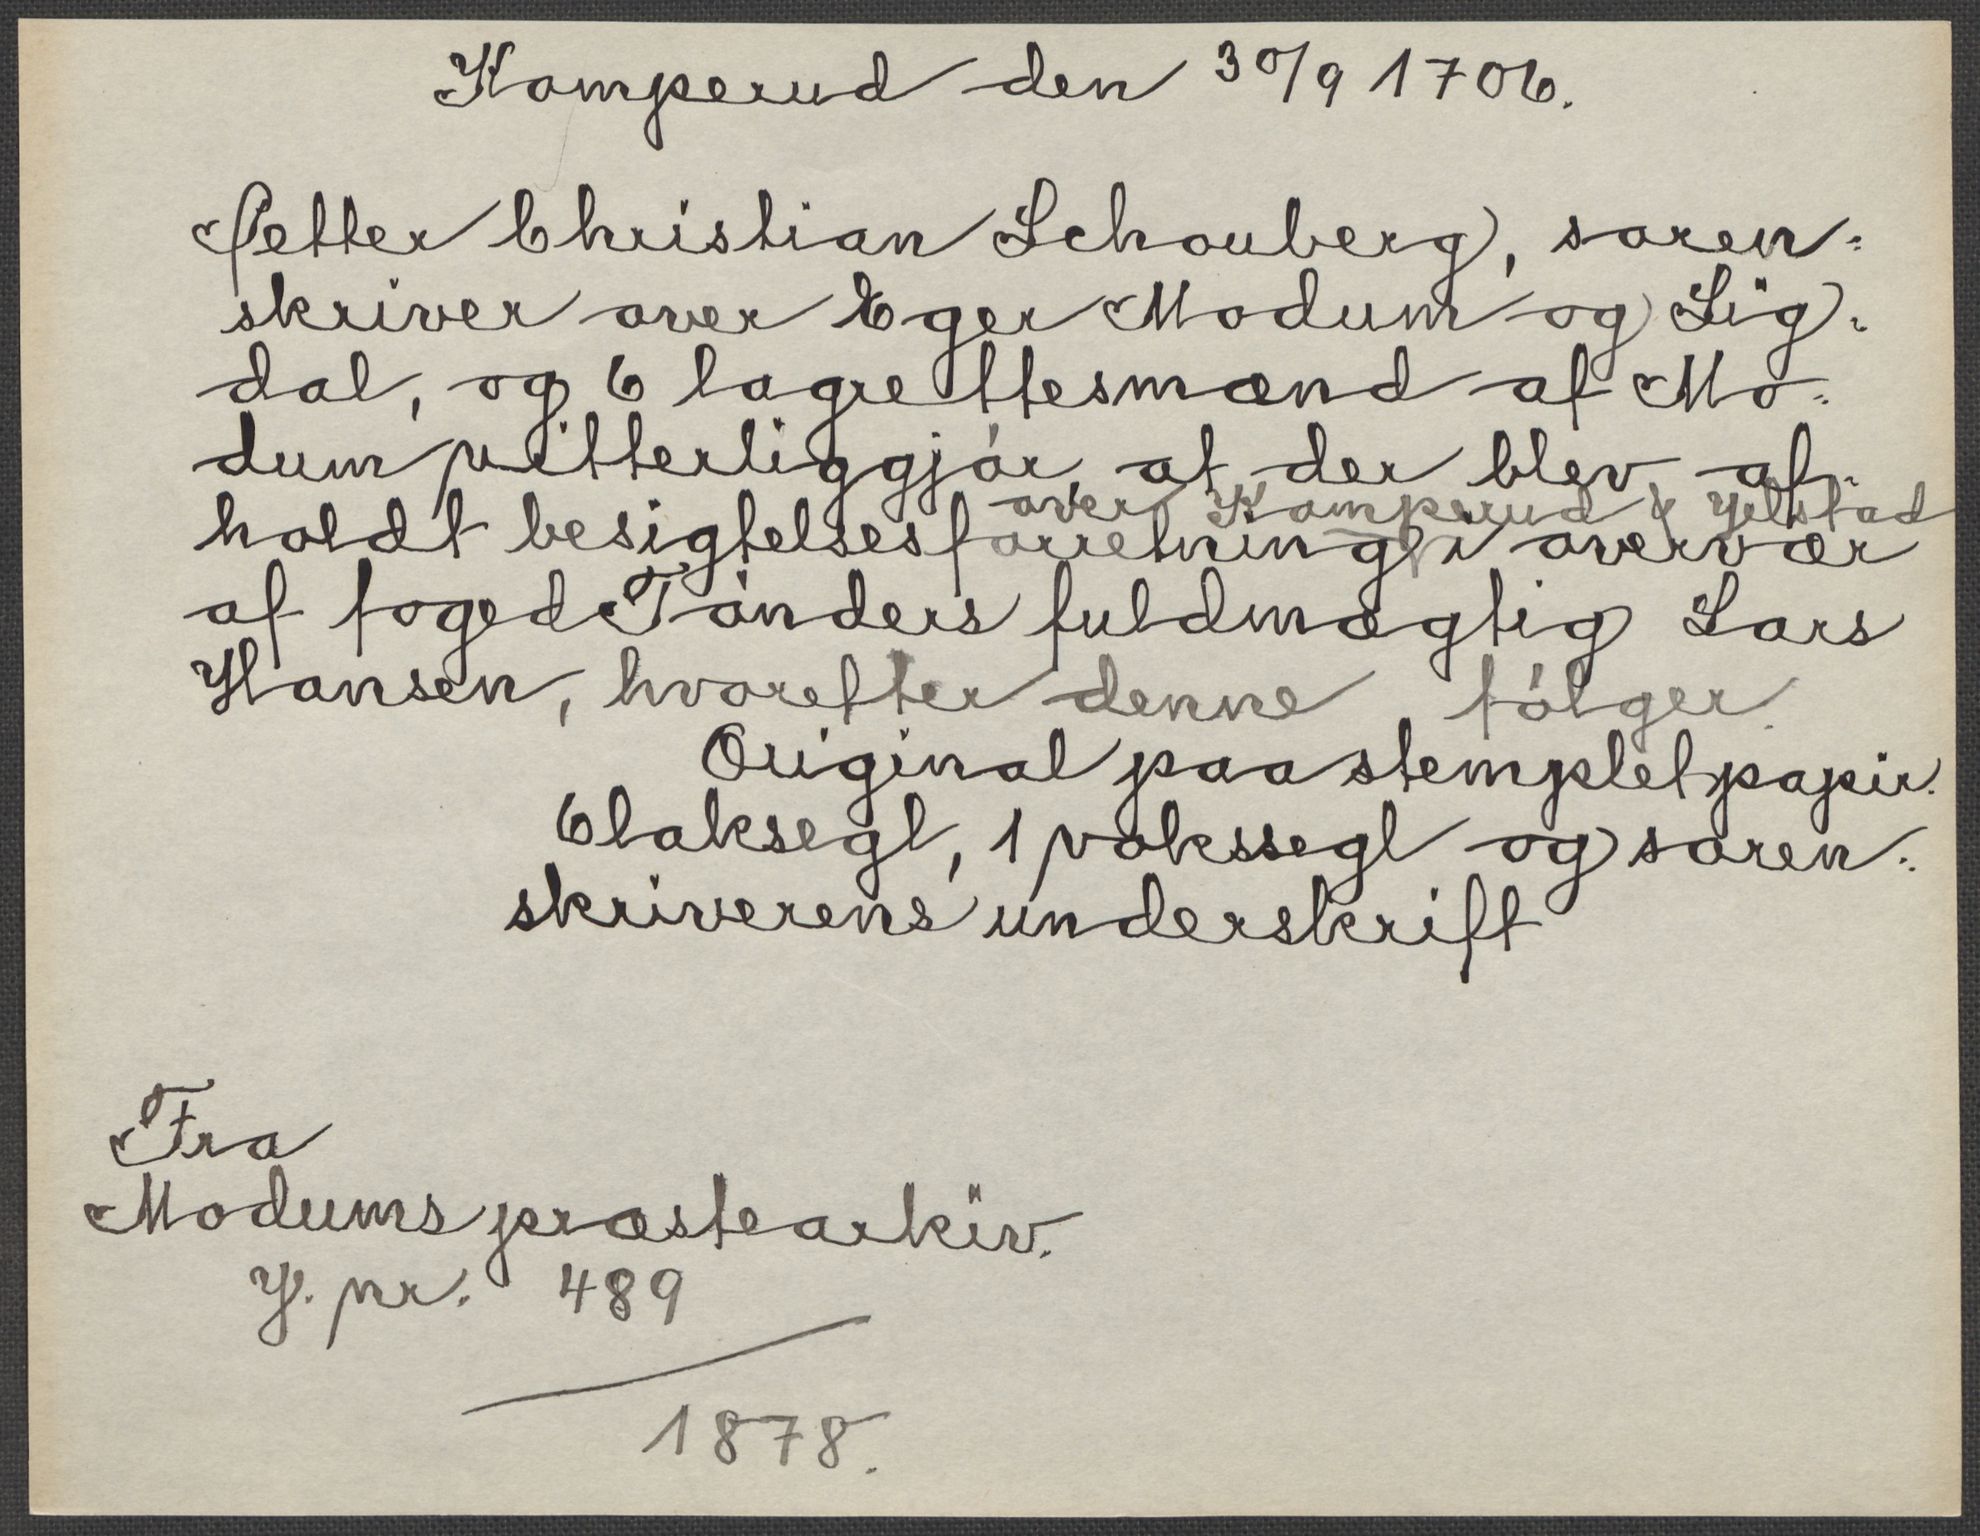 Komperud den 30/9 1706.
Petter Christian Schouberg, soren-
skriver over Eger Modum og Sig-
dal, og 6 lagrettesmænd af Mo-
dum vitterliggjör, at der blev af-
over Komperud &
holdt besigtelsesforretning i overvær
af foged Tönders fuldmægtig Lars
Hansen, hvorefter denne følger.
Original paa stemplet papir.
6 laksegl, 1 vokssegl og soren-
skriverens underskrift
Fra
Modums præstearkiv.
J. nr. 489
1878.